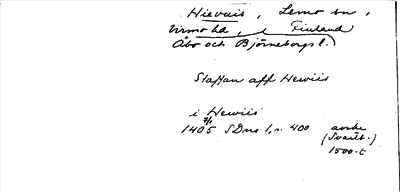 Hievuis, Lemo sn,
Virmo hd, Finland
Åbo och Björneborgs l.
Staffan aff Hewiis
i Hewiis
7/1
1405 SDns 1, n. 400 avskr
(Svartb.)
1500-t